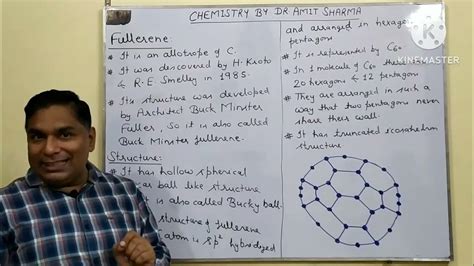 CHEMISTRY BY DR AMIT SHARMA
KINEMASTER
Fullerene:
* It is an allotrope of C.
* It was discovered by H. Kroto
& R.E. Smelley in 1985.
* Its structure was developed
by Architect Buck Minster
Fuller, So it is also called
Buck Minster fullerene.
Structure:
* It has hollow spherical
ball like structure
is also called Bucky ball.
structure of fullerene
atom is sp² hybridized
and arranged in hexagon
pentagons
* It is represented by C60.
* In 1 molecule of C60
20 hexagons & 12 pentagons
* They are arranged in such a
way that two pentagons never
share their wall.
* It has truncated icosahedron
structure